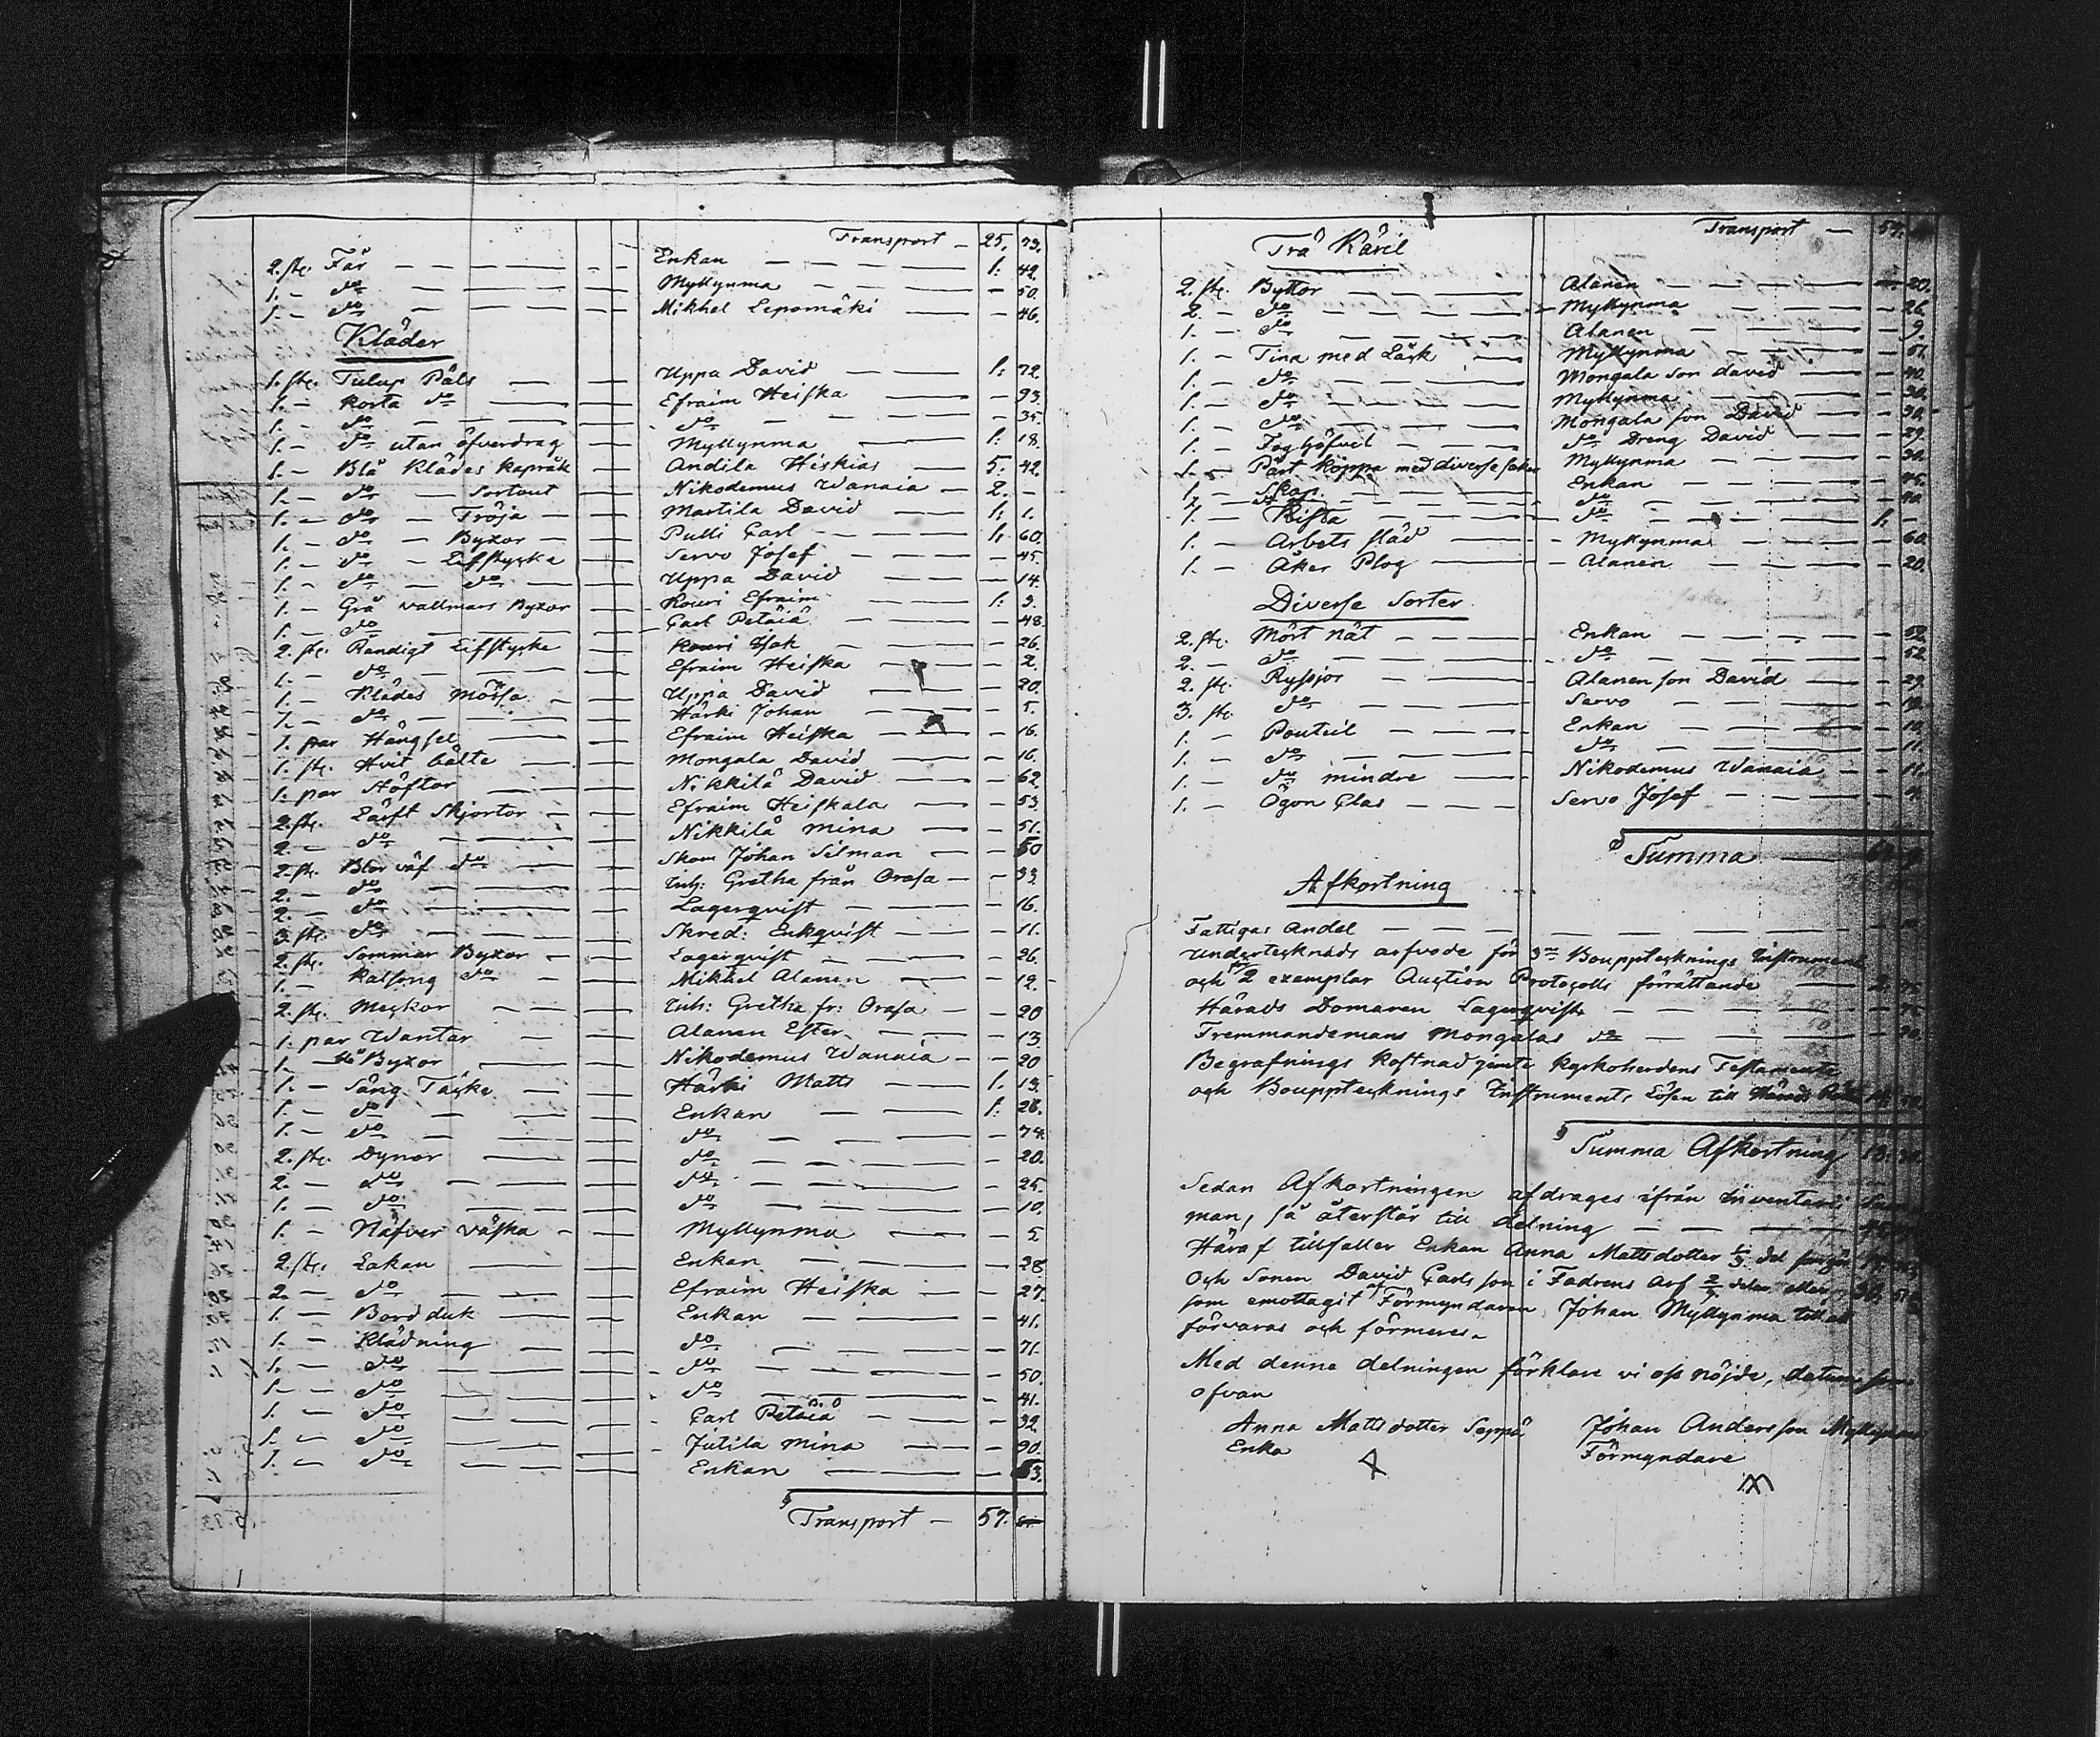 Transport — 25. 73.
2. st. Får — Enkan — 1: 42.
1. — do — Myllynma — 50.
1. — do — Mikhel Lepomäki — 46.
Kläder
1. st. Tulup Päls — Uppa David — 1: 72.
1. — korta do — Efraim Heiska — 93.
1. — do — do — 35.
1. — do utan öfverdrag — Myllynma — 1: 18.
1. — Blå Klädes kapråk — Andila Hiskias — 5. 42.
1. — do — Sortout — Nikodemus Wanaia — 2. —
1. — do — Tröja — Martila David — 1: 1.
1. — do — Byxor — Pulli Carl — 1: 60.
1. — do — Lifstycke — Servo Josef — 45.
1. — do — do — Uppa David — 14.
1. — Grå vallmars Byxor — Kouri Efraim — 1: 3.
1. — do — Carl Petäiä — 48
2. st. Randigt Lifstycke — Kouri Isak — 26.
1. — do — Efraim Heiska — 2.
1. — Klädes Mössa — Uppa David — 20.
1. — do — Härki Johan — 1.
1. par Hängsel — Efraim Heiska — 16.
1. st. Hvit bälte — Mongala David — 16.
1. par Stöflor — Nikkilä David — 62.
2. st. Lärft Skjortor — Efraim Heiskala — 53.
2. — do — Nikkilä Mina — 51.
2. st. Blor väf do — Skom Johan Silman — 50
2. — do — Inh: Gretha från Orasa — 33.
2. — do — Lagerqvist — 16.
3. st. do — Skred: Enkqvist — 11.
2. st. Sommar Byxor — Lagerqvist — 26.
1. — kalsong do — Mikhel Alanen — 12.
2. st. Meckor — Inh: Gretha fr: Orasa — 20
1. par Wantar — Alanen Ester — 13.
1. — Byxor — Nikodemus Wanaia — 20
1. — Säng Täcke — Härki Matts — 1. 13.
1. — do — Enkan — 1: 28.
1. — do — do — 74.
2. st. Dynor — do — 20.
2. — do — do — 25.
1. — do — do — 10.
1. — Näfver väska — Myllynma — 5.
2. st. Lakan — Enkan — 28.
2. — do — Efraim Heiska — 27.
1. — Bord duk — Enkan — 41.
1. — Klädning — do — 71.
1. — do — do — 50.
1. — do — do — 41.
1. — do — Carl Petäiä — 32.
1. — do — Jutila Mina — 90.
1. — do — Enkan — 53.
Transport — 57.
Transport — 57.
Trä Käril
2. st. Byttor — Alanen — 20.
2. — do — Myllynma — 26.
1. — do — Alanen — 9.
1. — Tina med Läck — Myllynma — 51.
1. — do — Mongala Son david — 40.
1. — do — Myllynma — 30.
1. — do — Mongala son David — 30.
1. — — do Dreng David — 29.
1. — Pärt Koppa med diverse saker — Myllynma — 30.
1. — Skåp — Enkan — 45.
1. — do — do
1. — Kista — do — 1. —
1. — Arbets släd — Myllynma — 60.
1. — Åker Plog — Alanen — 20.
Diverse Sorter
2. st. Mört nät — Enkan — 52.
2. — do — do — 52
2. st. Rysjor — Alanen son David — 29.
3. st. do — Servo
1. — Pouteil — Enkan — 10.
1. — do — do — 11.
1. — do mindre — Nikodemus Wanaia — 11.
1. — Ögon Glas — Servo Josef
Summa
Afkortning
Fattigas andel
undertecknads arfvode för 3ne Bouppteckningz Instrument
och 2 exemplar Auction Protocolls förrättande
Härads Domaren Lagerqvist
Fremmandemans Mongalas do
Begrafnings kostnad jemte kyrkoherdens Testamente
och Bouppteckning: Instruments Lösen till Härads
Summa Afkortning
Sedan Afkortningen afdrages ifrån Inventarii
man, så återstår till delning
Häraf tillfaller Enkan Anna Mattsdotter 1/3 del
Och Sonen David Carlsson i Fadrens Arf 2/3 delar eller
som emottagit af Förmyndaren Johan Myllynma till att
förvaras och förmeras.
Med denne delningen förklare vi oss nöjde, datum som
ofvan
Anna Matts dotter Seppä Johan Andersson Myllynma
Enka Förmyndare